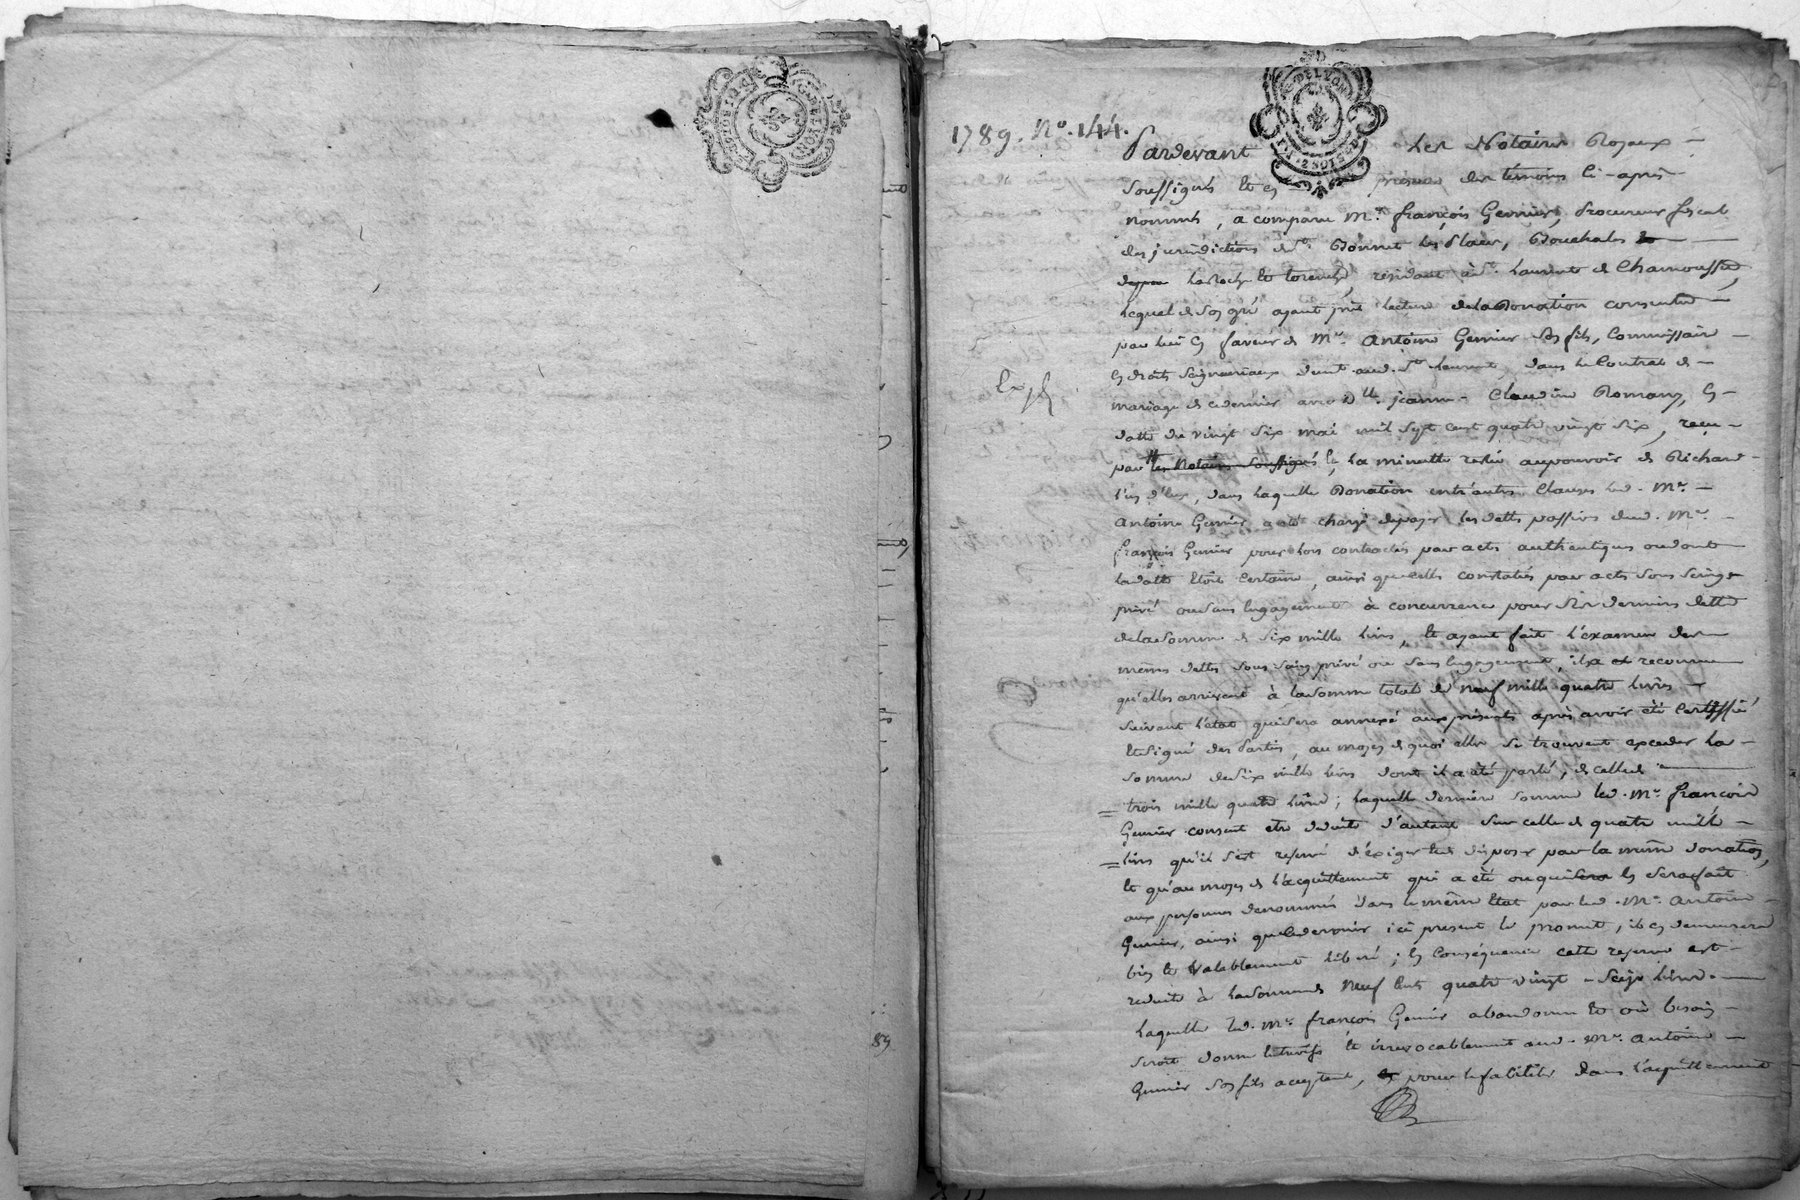 1789. No. 144.
Pardevant Les Notaires Royaux
soussignés et en présence des temoins ci-après
nommés, a comparu Mr. françois Gernier, Procureur fiscal
des juridictions de St. Bonnet les Places, Bouchala
Laroche et torenche, résidant à St. Laurent de Chamousset,
lequel de son gré ayant pris lecture de la Donation consentie
par lui en faveur de Mr. Antoine Gernier son fils, Commissaire
en droits seigneuriaux demt. aud. St. Laurent, dans le Contrat de
Exp
mariage de ce dernier avec dlle. jeanne-Claudine Romany, en
datte du vingt six mai mil sept cent quatre vingt six, reçu
par les Notaires soussignés la minutte restée au pouvoir de Richard
l'un d'eux, dans laquelle Donation entr'autres Clauses led. Mr.
Antoine Gernier a été chargé de payer les dettes passives dud. Mr.
françois Gernier pour lors contractés par actes authentiques ou dont
la datte étoit certaine, ainsi que celles constatés par actes sous seing
privé ou sans engagement à concurrence pour ces derniers dettes
de la somme de six mille livres, et ayant fait l'examen des
mêmes dettes sous seing privé ou sans engagement, il a reconnu
qu'elles arrivent à la somme total de neuf mille quatre livres
suivant l'état qui sera annexé aux présentes après avoir été Certiffié
et signé des Parties, au moyen de quoi elles se trouvent exceder la
somme de six mille livres dont il a été parlé, de celle de
trois mille quatre livres; laquelle derniere somme led. Mr. francois
Gernier consent etre déduite d'autant sur celle de quatre mille
livres qu'il s'est reservé d'éxiger et de disposer par la même donation,
et qu'au moyen de l'acquittement qui a été ou qui en sera fait
aux personnes denommés dans le même Etat par led. Mr. Antoine
Gernier, ainsi que ce dernier ici present le promet, il en demeurera
bien et valablement libéré; en conséquence cette reserve est
reduite à la somme de Neuf cent quatre vingt-seize livres
laquelle led. Mr. françois Gernier abandonne et où besoin
seroit donne entrevifs et irrevocablement aud. Mr. Antoine
Gernier son fils acceptant, pour le faciliter dans l'acquittement